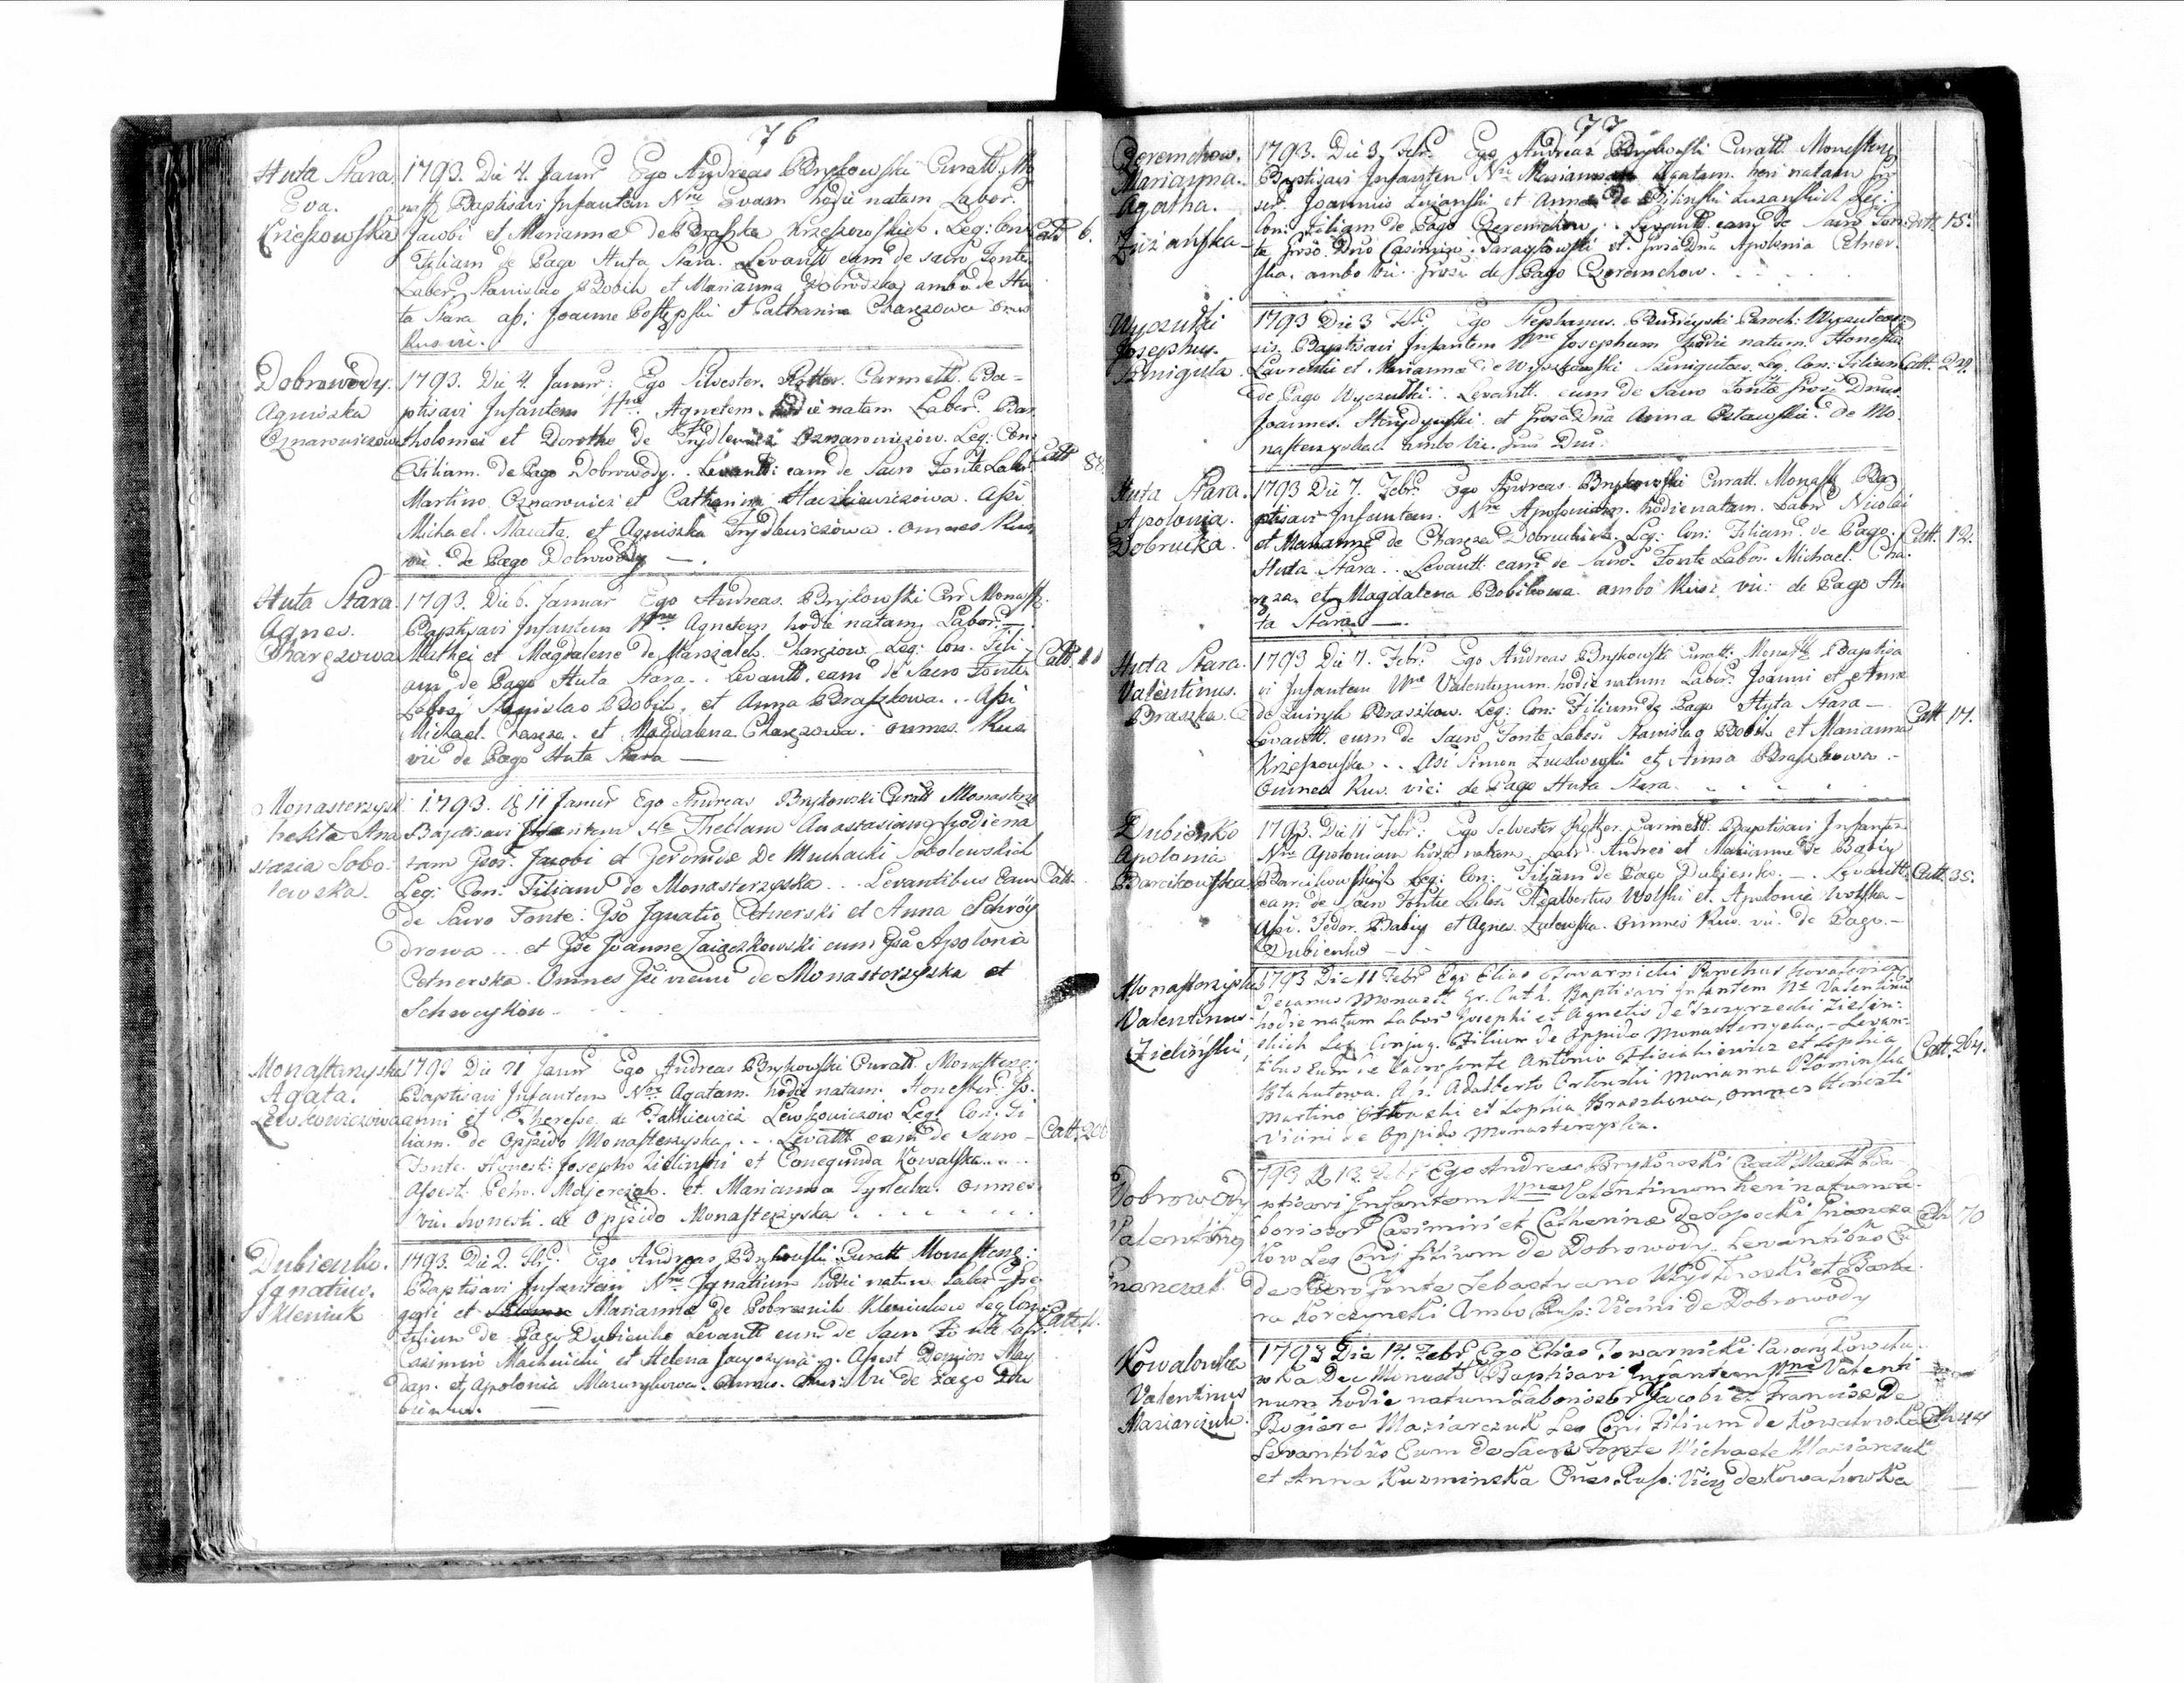 76
Huta Stara.
Eva.
Krzeszowska
1793. Die 4. Januar Ego Andreas Brykowski Curatt. Mo
nast. Baptisavi Infantem Nne Evam hodie natam Labor.
Jacobi et Marianna de Braszka Krzeszowskich. Leg: Con
Filiam de Pago Huta Stara. Levantt eam de sacro Fonte
Labor. Stanislao Bobik et Marianna Dobrodzka ambo de Hu
ta Stara as: Joanne Postępski et Catharina Charęzowa omnes
Rus vic.
Catt 6.
Dobrowody.
Agniszka
Oznarowiczow
1793. Die 4. Januar: Ego Silvester Carmelt. Ba-
ptisavi Infantem Nne. Agnetem hodie natam Labor. Bar
tholomei et Dorothe de Frydlewicz Oznarowiczow. Leg: Con:
Filiam. de Pago Dobrowody. Levantt: eam de Sacro Fonte Labor.
Martino Oznarowicz et Catharina. Assi
Michael. Macata. et Agniszka Frydlewiczowa. omnes Rus
vii. de Pago Dobrowody —.
Catt 58
Huta Stara.
Agnes.
Charęzowa
1793. Die 6. Januar Ego Andreas. Brykowski Cur Monast
Baptisavi Infantem Nne. Agnetem hodie natam, Labor. —
Mathei et Magdalene de Marszalek Charęzow. Leg: Con. Fili
am de Pago Huta Stara. Levantt. eam de Sacro Fonte
Labor. Stanislao Bobik, et Anna Braszkowa. Assi
Michael. Charęza. et Magdalena Charęzowa. omnes. Rus
vii de Pago Huta Stara —
Catt. 11
Monasterzysk
Thekla Ana
stazia Sobo-
lewska.
1793. d 11 Januar Ego Andreas Brykowski Curatt Monasterz
Baptisavi Infantem Ne Theklam Anastasiam hodie na
tam Gsor. Jacobi et De Muchacki Sobolewskich
Leg: Con: Filiam de Monasterzyska... Levantibus Eam
de Sacro Fonte: Gso Ignatio Cetnerski et Anna Schröy
drowa... et Gso Joanne Zaiączkowski cum Gsa Apolonia
Cetnerska. Omnes de Monasterzyska et
Schweykow
Catt.
Monastarzyska
Agata.
Lewkowiczowa
1793 Die 21 Januar Ego Andreas Brykowski Curatt. Monasterz:
Baptisavi Infantem Nne Agatam. hodie natam. Honestor. Jo-
anni et Therese de Patkiewicz Lewkowiczow Leg: Con: Fi
liam. de Oppido Monasterzyska... Levatt eam de Sacro -
Fonte. Honesti: Josepho Zielinski et Conegunda Kowalska...
Assest: Petro. Majerczak. et Marianna. Omnes
vii. honesti. de Oppido Monasterzyska
Catt. 206
Dubienko.
Ignatius.
Kleniuk
1793. Die 2. Febr. Ego Andreas Brykowski Curatt Monasterz:
Baptisavi Infantem Nne. Ignatium hodie natum Labor. Gre
gori et Marianna de Kleniukow Leg Con:
Filium de Pago Dubienko Levantt eum de Sacro Fonte Labor.
Casimiro Machnicki et Helena. Assest Demion May
dan. et Apolonia Mazurykowa. Omnes. Rus: vii de Pago Du
bienko. —
Catt. 4.
77
Czeremchow.
Marianna.
Agatha.
Luzańska
1793. Die 3 Febr. Ego Andreas Brykowski Curatt. Monasterz
Baptisavi Infantem Nne Mariannam Agatam. heri natam Gro
sor. Joannis Luzanski et Anna de Bilinski Luzanskich Leg:
Con: Filiam de Pago Czeremchow. Levantt. eam de Sacro Fon
te Groso Dno Casimiro. et Grosa Dna Apolonia Cetner-
ska. ambo vii Grosi de Pago Czeremchow.
Catt. 15.
Wyczułki
Josephus.
Szmiguła.
1793 Die 3 Febr. Ego Stephanus. Paroch: Wyczulcen
sis, Baptisavi Infantem Nne Josephum hodie natum. Honesto
Laurentii et Marianna de Szmigułow. Leg. Con: Filium
de Pago Wyczułki. Levantt. eum de Sacro Fonte Groso Dnus
Joannes. et Grosa Dna Anna. De Mo
nasterzyska. ambo vii.
Catt. 29.
Huta Stara.
Apolonia.
Dobrucka.
1793 Die 7. Febr. Ego Andreas Brykowski Curatt. Monast Ba
ptisavi Infantem. Nne Apoloniam. hodie natam. Labor Nicolai
et Marianna de Charęza Dobruckich. Leg: Con: Filiam. de Pago.
Huta Stara. Levantt. eam de Sacro Fonte Labor. Michael. Cha-
ręza. et Magdalena Bobikowa ambo Rusi vii: de Pago Hu
ta Stara —.
Catt. 12.
Huta Stara.
Valentinus.
Braszka.
1793 Die 7. Febr. Ego Andreas Brykowski Curatt: Monast Baptisa
vi Infantem Nne Valentinum. hodie natum Labor: Joanni et Anna
de Braszkow. Leg: Con: Filium de Pago Huta Stara —
Levantt. eum de Sacro Fonte Labor. Stanislao Bobik et Marianna
Krzeszowska.. Asi Simon et Anna Braszkowa. -
Omnes Rus. vici de Pago Huta Stara.
Catt 17.
Dubienko
Apolonia
Barcikowska
1793. Die 11 Febr: Ego Silvester Carmelt: Baptisavi Infantem
Nne Apoloniam hodie natam Labr. Andrei et Marianna de Babiy
Barcikowskich Leg: Con: Filiam de Pago Dubienko. —. Levantt.
eam de Sacro Fonte Labor. Adalbertus Wolski et. Apolonia Wolska —
Assi. Fedor. Babiy et Agnes. Omnes Rus. vii. de Pago. —
Dubienko —
Catt. 35.
Monasterzyska
Valentinus.
Zieliński
1793 Die 11 Febr Ego Elias Towarnicki Parochus Kovaloviens
Decanus Monast. Gr. Cath. Baptisavi Infantem Ne Valentinu
hodie natum Labor Josephi et Agnetis de Zielin-
skich Leg. Conjug. Filium de Oppido Monasterzyska, — Levan-
tibus Eum de Sacro fonte Antonio et Sophia
Assi. Adalberto Marianna Słominska
Martino et Sophia Braszkowa, omnes Honesti
Vicini de Oppido Monasterzyska.
Catt. 264.
Dobrowody
Valentinus
1793 d 12 Febr Ego Andreas Brykowski Curatt Monast Ba-
ptisavi Infantem Nne Valentinum heri natum La-
boriosor Casimiri et Catherina de Sapocki
kow Leg Conj filium de Dobrowody. Levantibus Eu
de Sacro fonte Sebastyano et Barba
ra Korczynski Ambo Rus: Vicini de Dobrowody
Cth 70
Kowalowka
Valentinus
Maziarczuk.
1793 Die 14. Febr Ego Elias Towarnicki Paroch Kowalo
wka Dec Monast Baptisavi Infantem Nne Valenti
num hodie natum Laboriosor Jacobi et Francisce De
Bogiera Maziarczuk Leg Conj Filium de Kowalowka
Levantibus Eum de Sacro Fonte Michaele Maziarczuk
et Anna Kuzminska Omes Rus: Vicy de Kowalowka
Cth 44